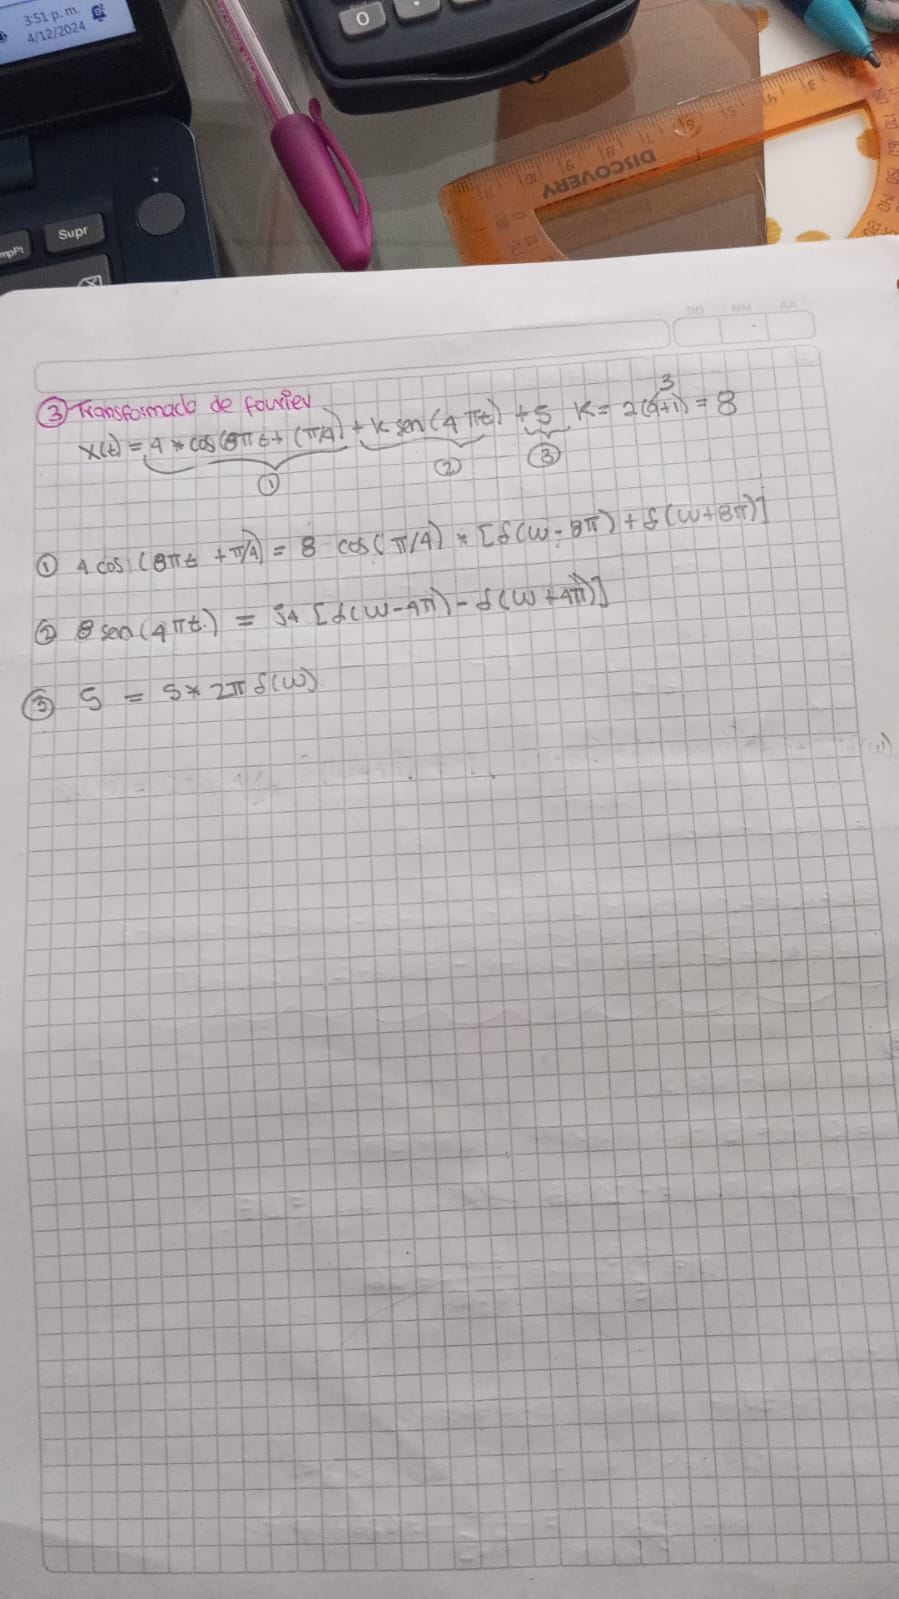 3:51 p. m.
4/12/2024
0
Supr
mpPt
DISCOVERY
DD MM AA
③ Transformada de fourier
x(t) = 4 * cos(8πt + (π/4) + K sen(4πt) + 5 K = 2(a+1) = 8
3
① ② ③
① 4 cos (8πt + π/4) = 8 cos(π/4) * [δ(w - 8π) + δ(w + 8π)]
② 8 sen(4πt) = j4 [δ(w - 4π) - δ(w + 4π)]
③ 5 = 5 * 2π δ(w)